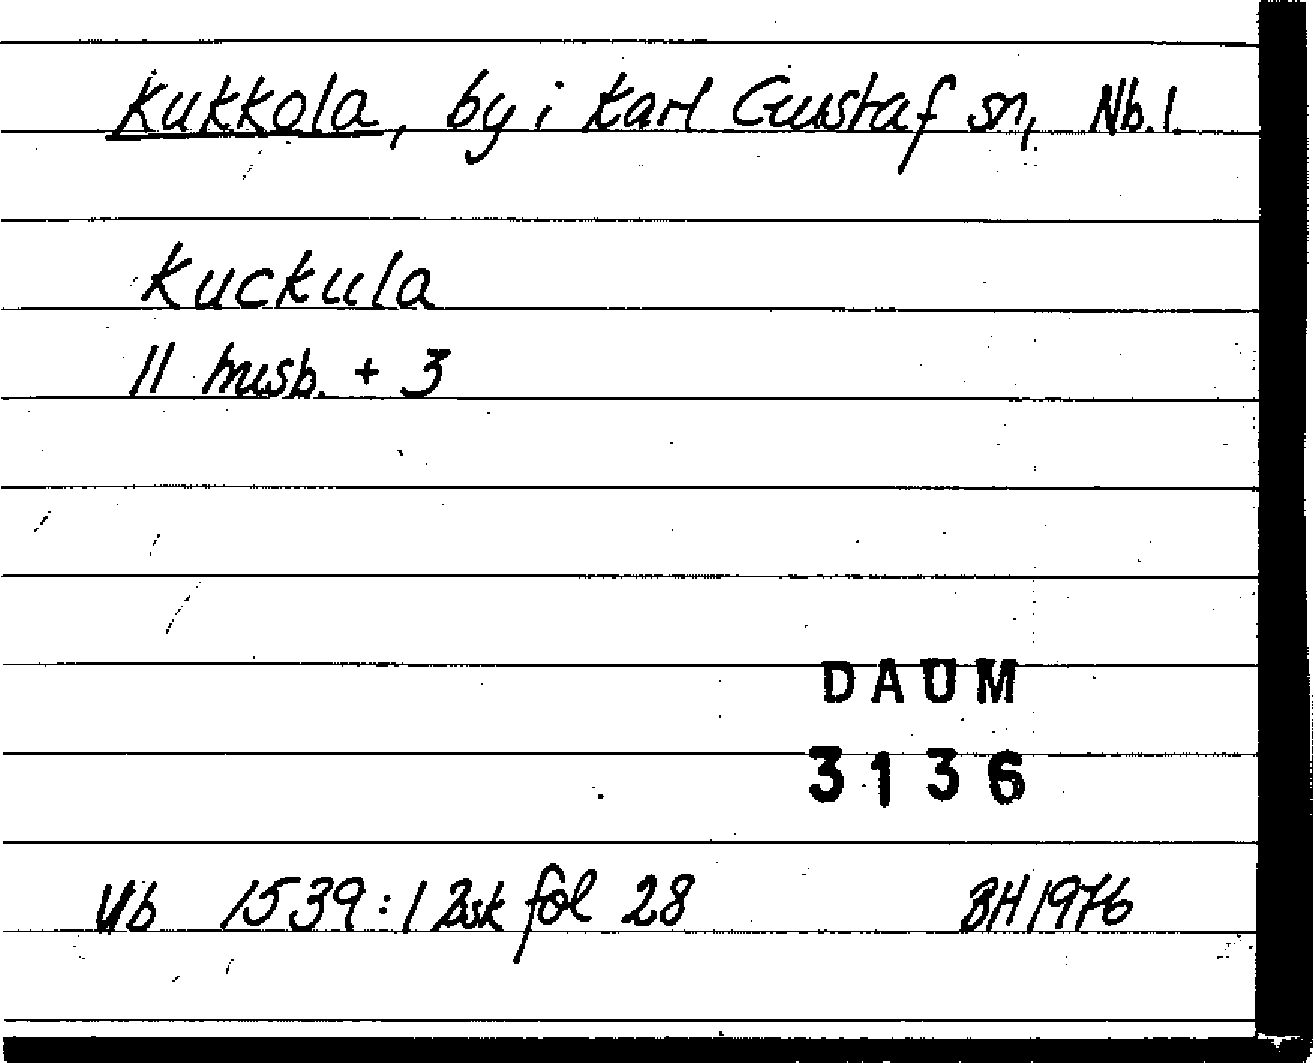 Kukkola, by i Karl Gustaf sn, Nb. l.
Kuckula
11 husb. + 3
DAUM
3136
Vb 1539:1 Bsk fol 28 BH 1976